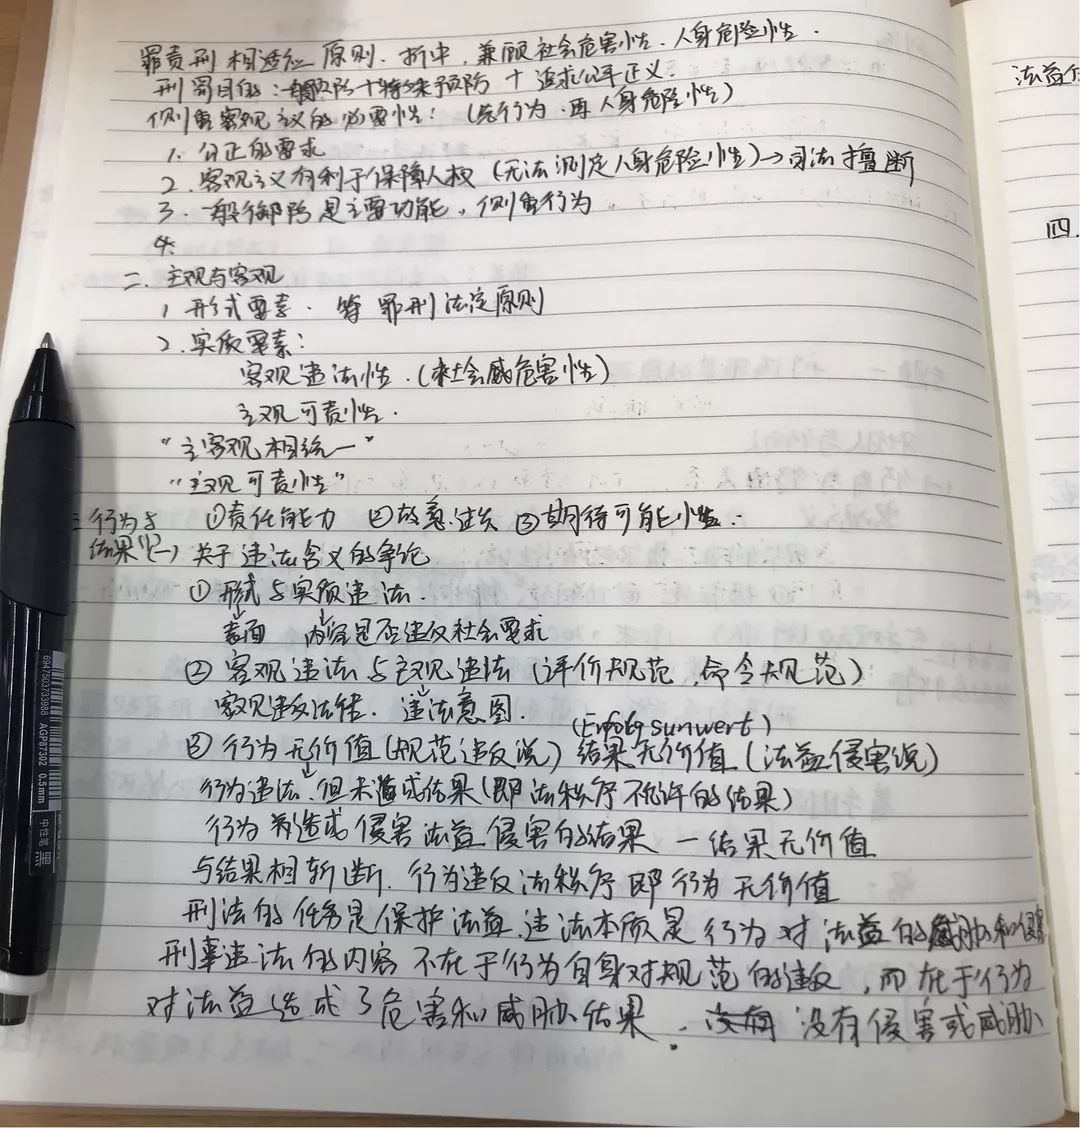 罪责刑相适应原则.折中,兼顾社会危害性.人身危险性.
刑罚目的:一般预防+特殊预防+追求公平正义.
侧重客观主义的必要性:(先行为.再人身危险性)
1.公正的要求
2.客观主义有利于保障人权(无法测定人身危险性)→司法擅断
3.一般预防是主要功能,侧重行为
4.
二.主观与客观
1.形式要素.符罪刑法定原则
2.实质要素:
客观违法性.(社会危害性)
主观可责性.
"主客观相统一"
"主观可责性"
三行为与 ①责任能力 ②故意过失 ③期待可能性.
结果(一)关于违法含义的争论
①形式与实质违法.
表面 内容是否违反社会要求
②客观违法与主观违法(评价规范.命令规范)
客观违反法律.违法意图.
(Erfolgsunwert)
③行为无价值(规范违反说)结果无价值(法益侵害说)
行为违法.但未造成结果(即法秩序不允许的结果)
行为造成侵害法益侵害的结果一结果无价值
与结果相斩断.行为违反法秩序即行为无价值
刑法的任务是保护法益.违法本质是行为对法益的威胁和侵害
刑事违法的内容不在于行为自身对规范的违反,而在于行为
对法益造成了危害和威胁结果.没有侵害或威胁
法益
四.
6947503733988 AGP87302 0.5mm
中性笔 黑